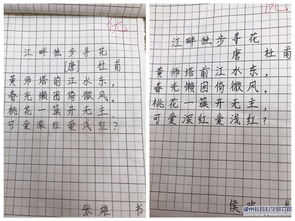 优
江畔独步寻花
（唐）杜甫
黄师塔前江水东，
春光懒困倚微风，
桃花一簇开无主，
可爱深红爱浅红？
张雄 书
优
江畔独步寻花
唐 杜甫
黄师塔前江水东，
春光懒困倚微风，
桃花一簇开无主，
可爱深红爱浅红？
侯 书